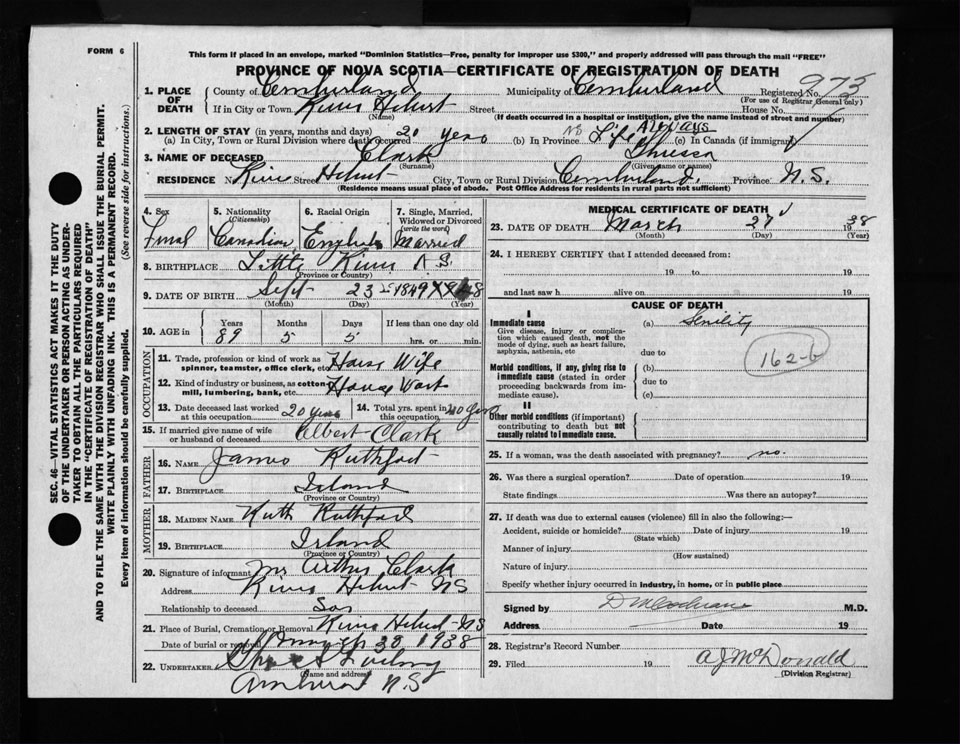 FORM 6
This form if placed in an envelope, marked "Dominion Statistics—Free, penalty for improper use $300," and properly addressed will pass through the mail "FREE"
PROVINCE OF NOVA SCOTIA—CERTIFICATE OF REGISTRATION OF DEATH
973
1. PLACE OF DEATH County of Cemberland Municipality of Cemberland Registered No.
(For use of Registrar General only)
If in City or Town River Hebert Street House No.
(Name) (If death occurred in a hospital or institution, give the name instead of street and number)
2. LENGTH OF STAY (in years, months and days)
(a) In City, Town or Rural Division where death occurred 20 years (b) In Province NS Life Always (c) In Canada (if immigrant)
3. NAME OF DECEASED Clark
(Surname) (Given name or names)
RESIDENCE No. River Street Hebert City, Town or Rural Division Cemberland. Province N.S.
(Residence means usual place of abode. Post Office Address for residents in rural parts not sufficient)
SEC. 46—VITAL STATISTICS ACT MAKES IT THE DUTY
OF THE UNDERTAKER OR PERSON ACTING AS UNDER-
TAKER TO OBTAIN ALL THE PARTICULARS REQUIRED
IN THE "CERTIFICATE OF REGISTRATION OF DEATH"
AND TO FILE THE SAME WITH THE DIVISION REGISTRAR WHO SHALL ISSUE THE BURIAL PERMIT.
WRITE PLAINLY WITH UNFADING INK. THIS IS A PERMANENT RECORD.
Every item of information should be carefully supplied. (See reverse side for instructions.)
4. Sex
5. Nationality (Citizenship)
Canadian
6. Racial Origin
English
7. Single, Married, Widowed or Divorced (write the word)
Married
8. BIRTHPLACE Little River N S.
(Province or Country)
9. DATE OF BIRTH Sept 23 1849
(Month) (Day) (Year)
10. AGE in Years Months Days If less than one day old
89 5 5 hrs. or min.
OCCUPATION
11. Trade, profession or kind of work as spinner, teamster, office clerk, etc. House Wife
12. Kind of industry or business, as cotton mill, lumbering, bank, etc. House Work
13. Date deceased last worked at this occupation 20 years
14. Total yrs. spent in this occupation
15. If married give name of wife or husband of deceased Albert Clark
FATHER
16. NAME James Ruthford
17. BIRTHPLACE Irland
(Province or Country)
MOTHER
18. MAIDEN NAME Ruth Ruthford
19. BIRTHPLACE Irland
(Province or Country)
20. Signature of informant Mr Arthur Clark
Address River Hebert NS
Relationship to deceased Son
21. Place of Burial, Cremation or Removal River Hebert NS
Date of burial or removal March 30 1938
22. UNDERTAKER
(Name and address)
Amherst N.S
MEDICAL CERTIFICATE OF DEATH
23. DATE OF DEATH March 27 1938
(Month) (Day) (Year)
24. I HEREBY CERTIFY that I attended deceased from:
19 to 19
and last saw h alive on 19
CAUSE OF DEATH
I
Immediate cause (a) Senility
Give disease, injury or complication which caused death, not the mode of dying, such as heart failure, asphyxia, asthenia, etc
due to
162-b
Morbid conditions, if any, giving rise to immediate cause (stated in order proceeding backwards from immediate cause). (b)
due to
(c)
II
Other morbid conditions (if important) contributing to death but not causally related to immediate cause.
25. If a woman, was the death associated with pregnancy? no.
26. Was there a surgical operation? Date of operation 19
State findings Was there an autopsy?
27. If death was due to external causes (violence) fill in also the following:—
Accident, suicide or homicide? Date of injury 19
(State which)
Manner of injury
(How sustained)
Nature of injury
Specify whether injury occurred in industry, in home, or in public place
Signed by D M Cochrane M.D.
Address Date 19
28. Registrar's Record Number
29. Filed 19 A J McDonald
(Division Registrar)